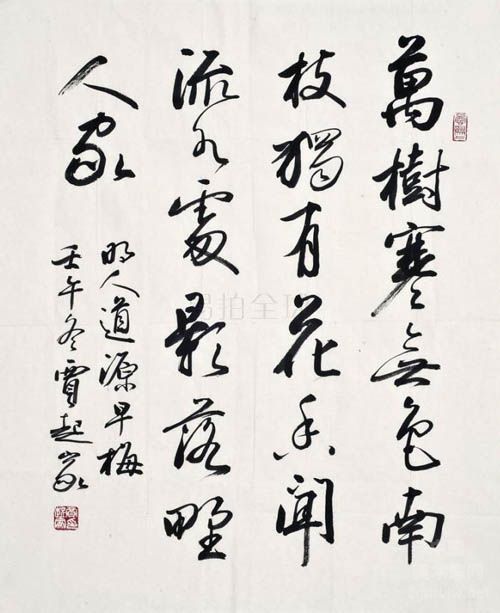 萬樹寒無色南
枝獨有花香聞
流水處影落野
人家
明人道源早梅
壬午冬賈起家